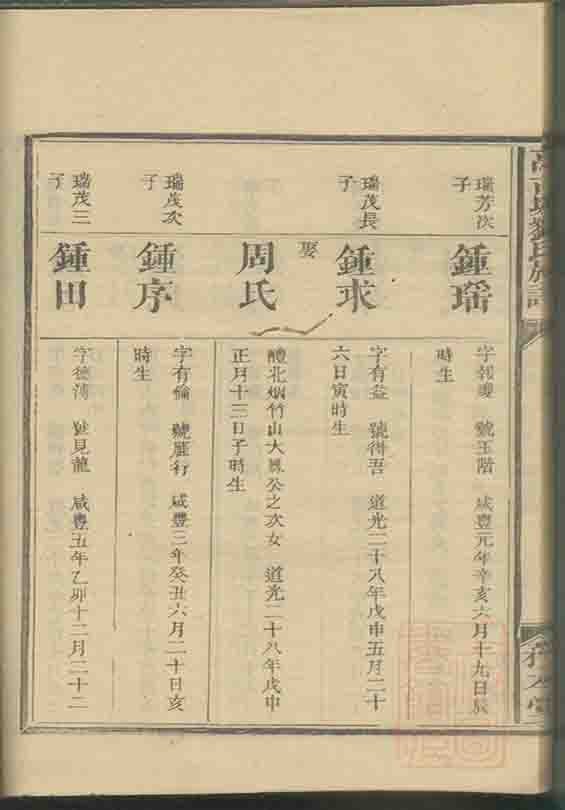 劉氏族譜
瑞芳次
子
鍾瑶
字報瓊 號玉階 咸豐元年辛亥六月十九日辰
時生
瑞茂長
子
鍾求
字有益 號得吾 道光二十八年戊申五月二十
六日寅時生
娶
周氏
醴北烟竹山大鳳公之次女 道光二十八年戊申
正月十三日子時生
瑞茂次
子
鍾序
字有倫 號雁行 咸豐三年癸丑六月二十日亥
時生
瑞茂三
子
鍾田
字德溥 號見龍 咸豐五年乙卯十二月二十二